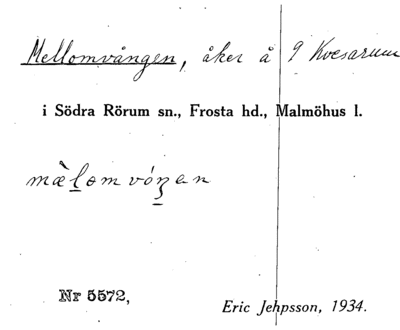 Mellomvången, åker å 9 Kvesarum
i Södra Rörum sn., Frosta hd., Malmöhus l.
mæ̀l̲om vóŋ̲en
Nr 5572,
Eric Jehpsson, 1934.